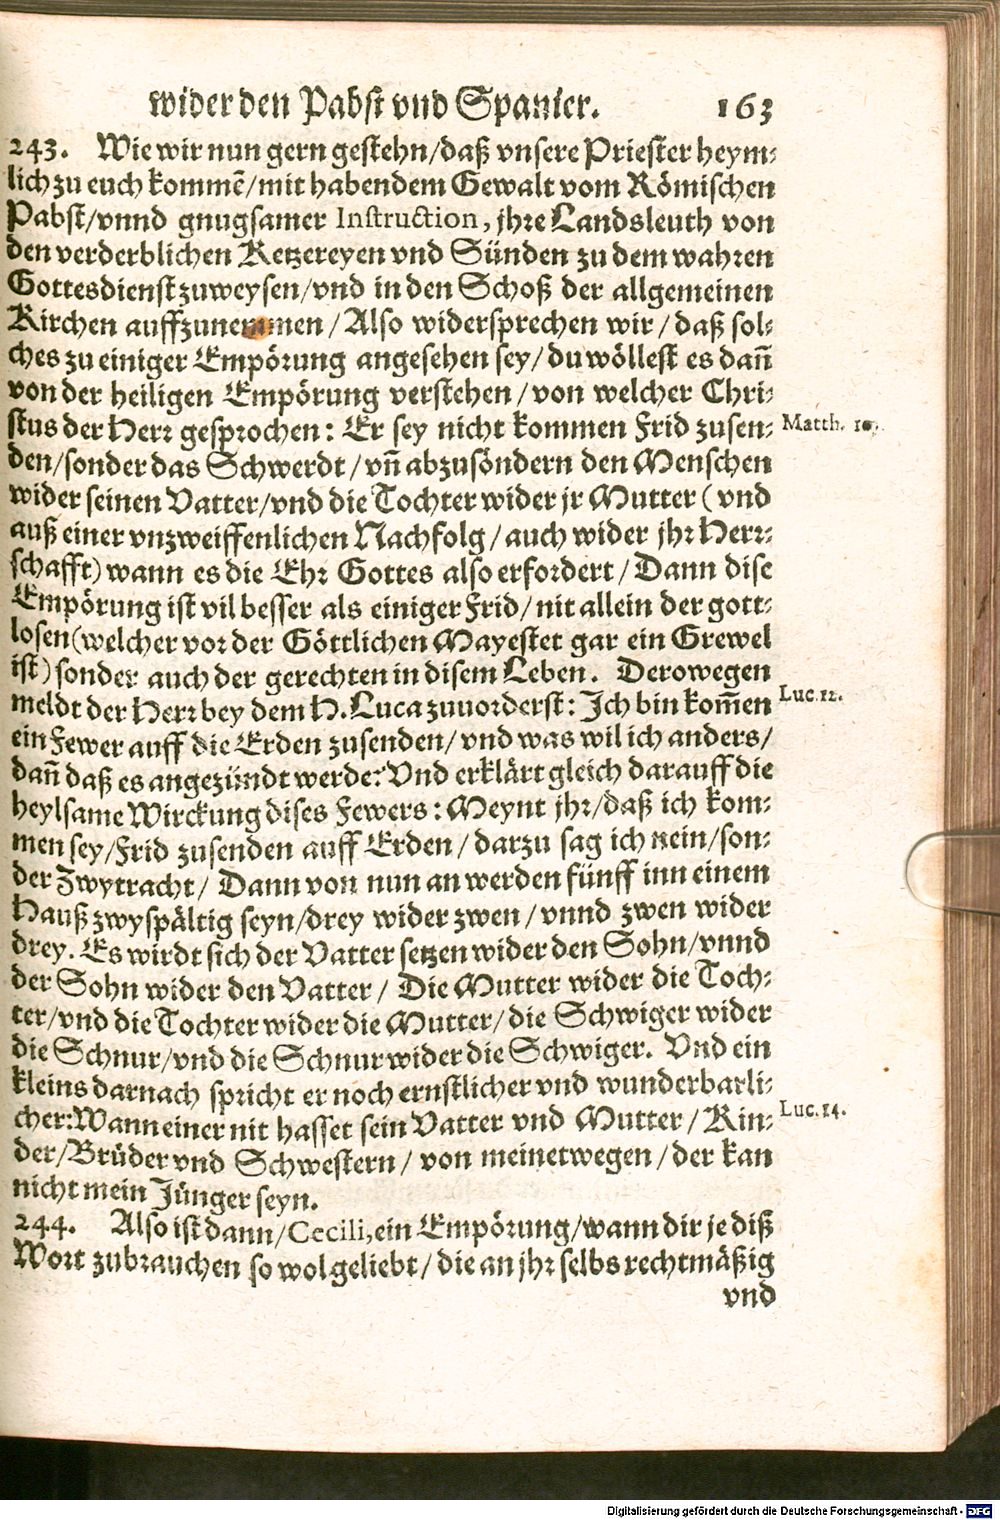 wider den Pabst vnd Spanier. 163
243. Wie wir nun gern gestehn/daß vnsere Priester heym-
lich zu euch kommẽ/mit habendem Gewalt vom Römischen
Pabst/vnnd gnugsamer Instruction, jhre Landsleuth von
den verderblichen Ketzereyen vnd Sünden zu dem wahren
Gottesdienst zuweysen/vnd in den Schoß der allgemeinen
Kirchen auffzunemmen/Also widersprechen wir/daß sol-
ches zu einiger Empörung angesehen sey/du wöllest es dañ
von der heiligen Empörung verstehen/von welcher Chri-
stus der Herr gesprochen: Er sey nicht kommen Frid zusen- Matth. 10.
den/sonder das Schwerdt/vñ abzusöndern den Menschen
wider seinen Vatter/vnd die Tochter wider jr Mutter (vnd
auß einer vnzweiffenlichen Nachfolg/auch wider jhr Herr-
schafft) wann es die Ehr Gottes also erfordert/Dann dise
Empörung ist vil besser als einiger Frid/nit allein der gott-
losen (welcher vor der Göttlichen Mayestet gar ein Grewel
ist) sonder auch der gerechten in disem Leben. Derowegen
meldt der Herr bey dem H. Luca zuuorderst: Ich bin kom̃en Luc. 12.
ein Fewer auff die Erden zusenden/vnd was wil ich anders/
dañ daß es angezündt werde? Vnd erklärt gleich darauff die
heylsame Wirckung dises Fewers: Meynt jhr/daß ich kom-
men sey/Frid zusenden auff Erden/darzu sag ich nein/son-
der Zwytracht/Dann von nun an werden fünff inn einem
Hauß zwyspältig seyn/drey wider zwen/vnnd zwen wider
drey. Es wirdt sich der Vatter setzen wider den Sohn/vnnd
der Sohn wider den Vatter/Die Mutter wider die Toch-
ter/vnd die Tochter wider die Mutter/die Schwiger wider
die Schnur/vnd die Schnur wider die Schwiger. Vnd ein
kleins darnach spricht er noch ernstlicher vnd wunderbarli-
cher: Wann einer nit hasset sein Vatter vnd Mutter/Kin- Luc. 14.
der/Brüder vnd Schwestern/von meinetwegen/der kan
nicht mein Jünger seyn.
244. Also ist dann/Cecili, ein Empörung/wann dir je diß
Wort zubrauchen so wol geliebt/die an jhr selbs rechtmäßig
vnd
Digitalisierung gefördert durch die Deutsche Forschungsgemeinschaft - DFG